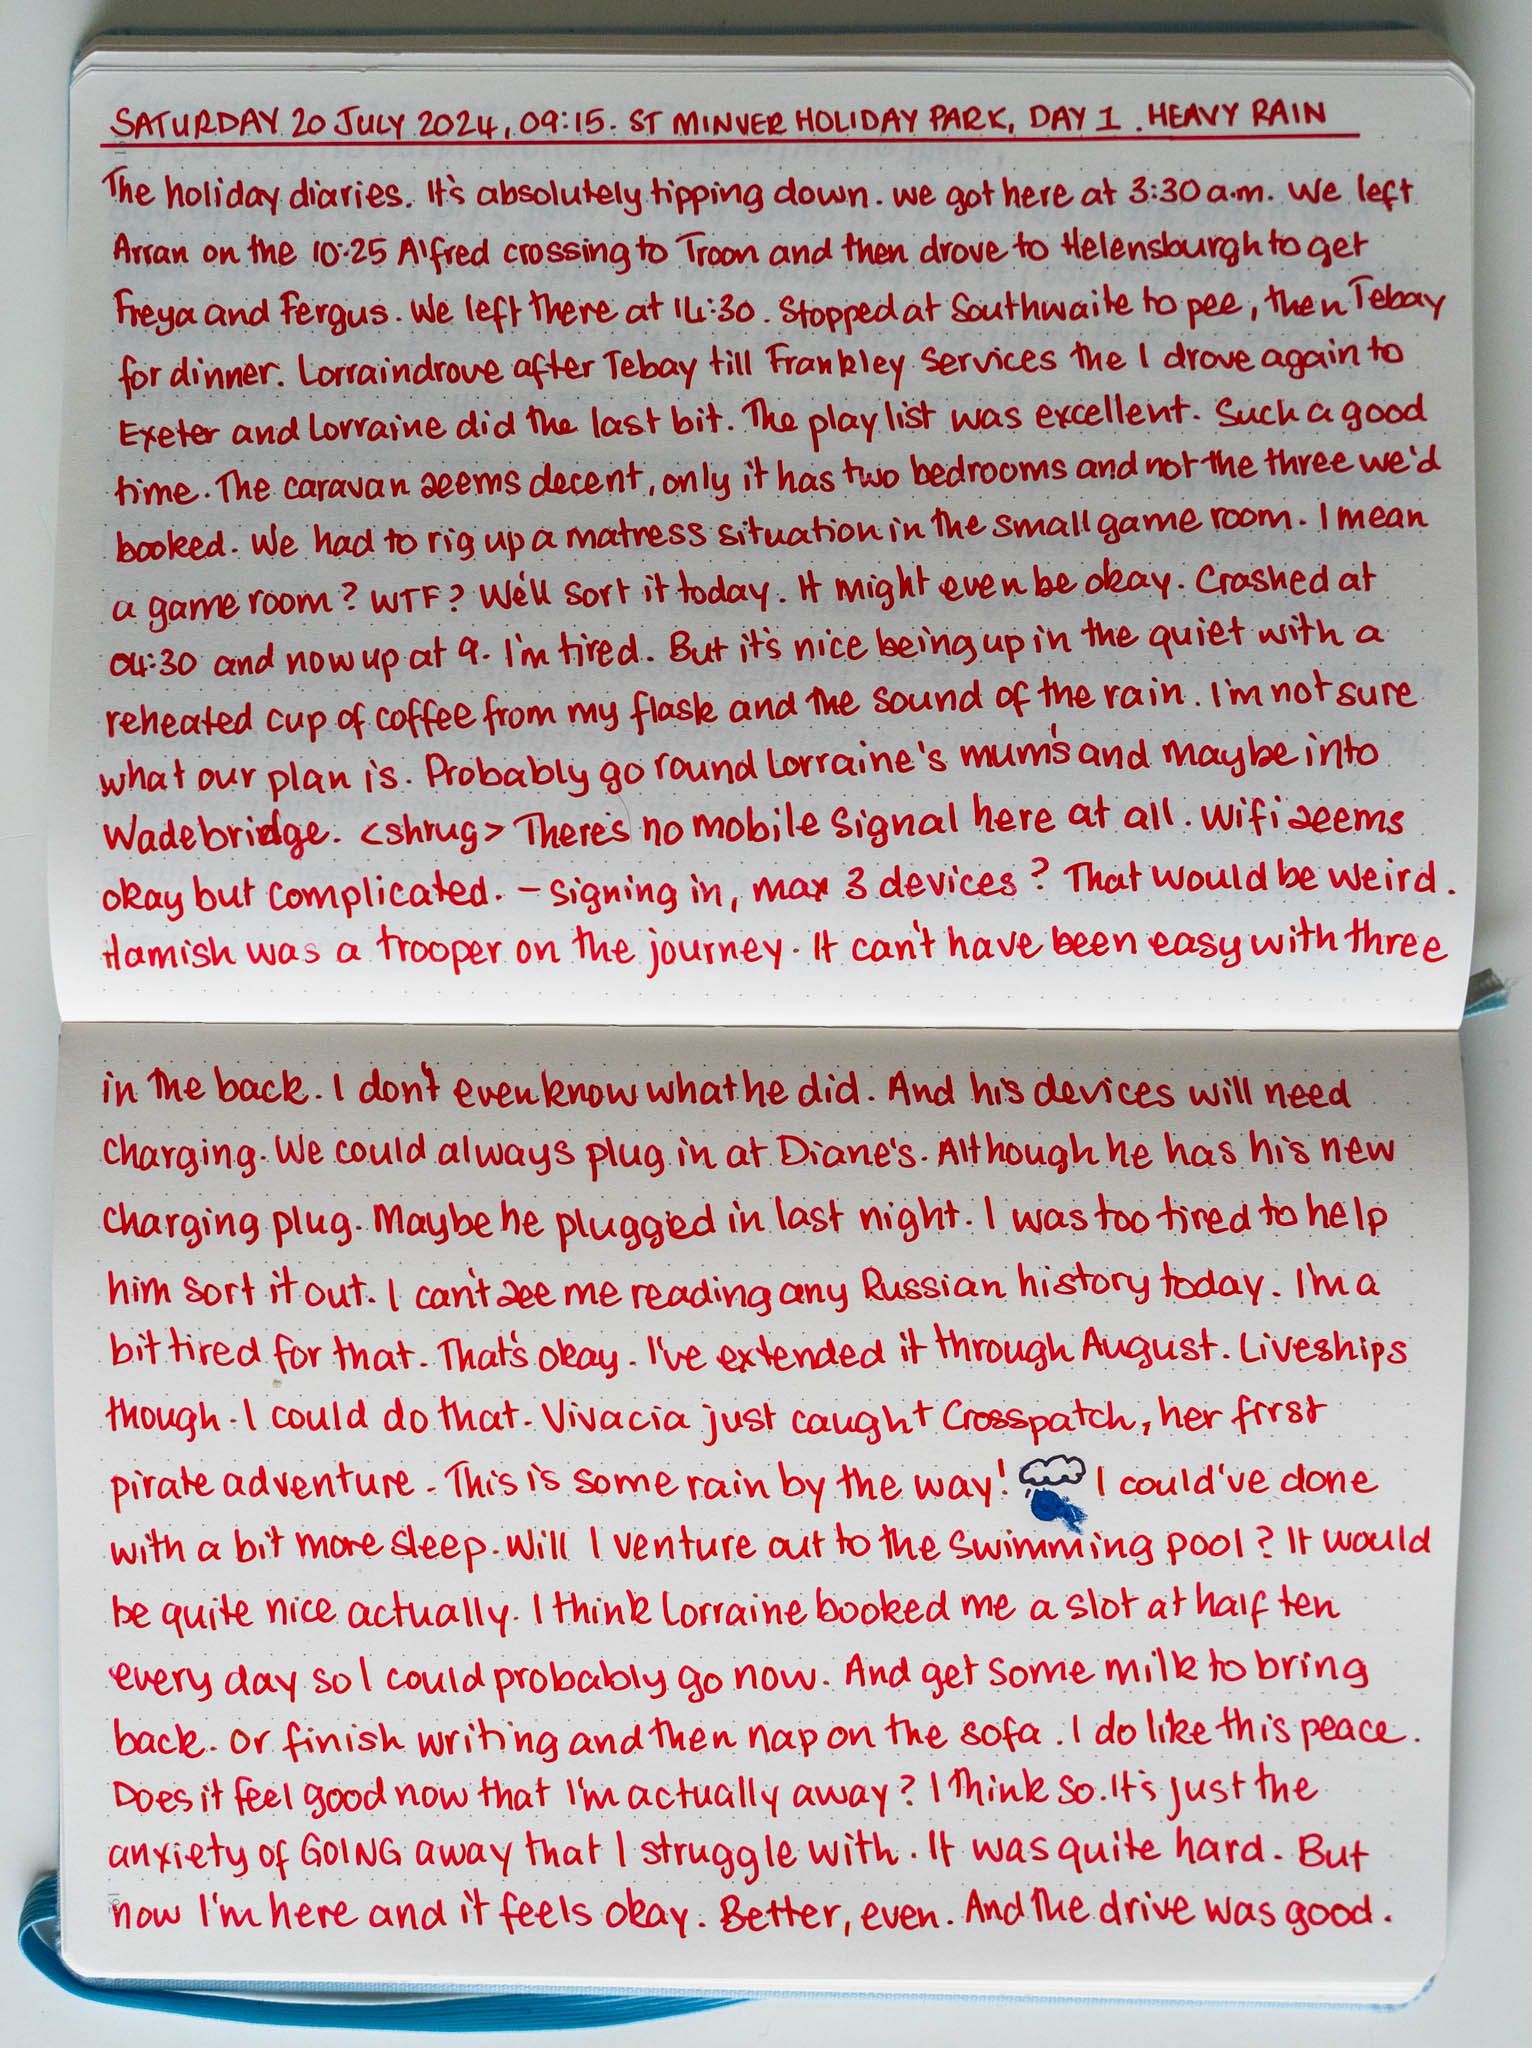 SATURDAY 20 JULY 2024, 09:15. ST MINVER HOLIDAY PARK, DAY 1. HEAVY RAIN
The holiday diaries. It's absolutely tipping down. We got here at 3:30 a.m. We left
Arran on the 10:25 Alfred crossing to Troon and then drove to Helensburgh to get
Freya and Fergus. We left there at 14:30. Stopped at Southwaite to pee, then Tebay
for dinner. Lorraindrove after Tebay till Frankley Services the I drove again to
Exeter and Lorraine did the last bit. The playlist was excellent. Such a good
time. The caravan seems decent, only it has two bedrooms and not the three we'd
booked. We had to rig up a matress situation in the small game room. I mean
a game room? WTF? We'll sort it today. It might even be okay. Crashed at
04:30 and now up at 9. I'm tired. But it's nice being up in the quiet with a
reheated cup of coffee from my flask and the sound of the rain. I'm not sure
what our plan is. Probably go round Lorraine's mum's and maybe into
Wadebridge. <shrug> There's no mobile signal here at all. Wifi seems
okay but complicated. – signing in, max 3 devices? That would be weird.
Hamish was a trooper on the journey. It can't have been easy with three
in the back. I don't even know what he did. And his devices will need
charging. We could always plug in at Diane's. Although he has his new
charging plug. Maybe he plugged in last night. I was too tired to help
him sort it out. I can't see me reading any Russian history today. I'm a
bit tired for that. That's okay. I've extended it through August. Liveships
though. I could do that. Vivacia just caught Crosspatch, her first
pirate adventure. This is some rain by the way! I could've done
with a bit more sleep. Will I venture out to the swimming pool? It would
be quite nice actually. I think Lorraine booked me a slot at half ten
every day so I could probably go now. And get some milk to bring
back. Or finish writing and then nap on the sofa. I do like this peace.
Does it feel good now that I'm actually away? I think so. It's just the
anxiety of GOING away that I struggle with. It was quite hard. But
now I'm here and it feels okay. Better, even. And the drive was good.